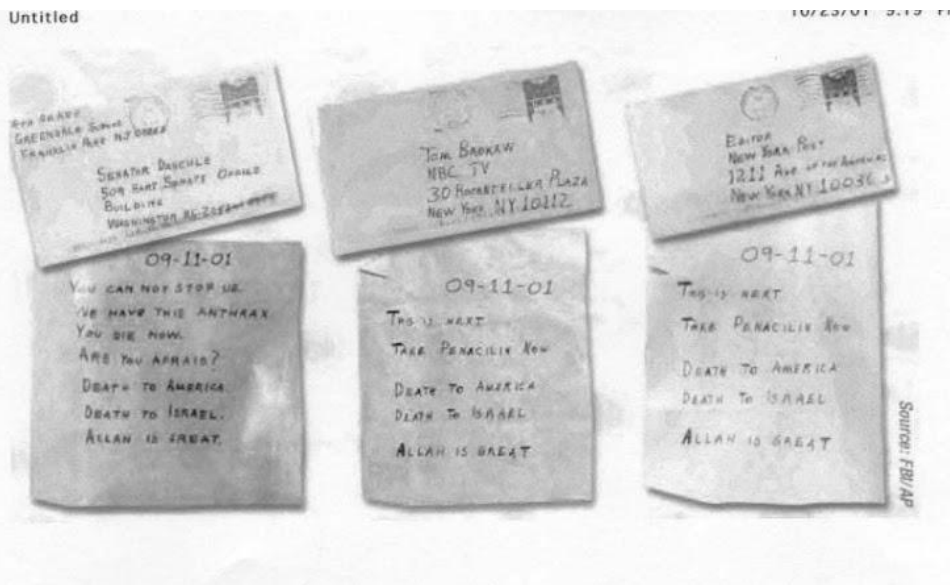 Untitled
10/23/01 9:19
4TH GRADE
GREENDALE SCHOOL
FRANKLIN PARK NJ 08852
SENATOR DASCHLE
509 HART SENATE OFFICE
BUILDING
WASHINGTON
09-11-01
YOU CAN NOT STOP US.
WE HAVE THIS ANTHRAX.
YOU DIE NOW.
ARE YOU AFRAID?
DEATH TO AMERICA.
DEATH TO ISRAEL.
ALLAH IS GREAT.
TOM BROKAW
NBC TV
30 ROCKEFELLER PLAZA
NEW YORK NY 10112
09-11-01
THIS IS NEXT
TAKE PENACILIN NOW
DEATH TO AMERICA
DEATH TO ISRAEL
ALLAH IS GREAT
EDITOR
NEW YORK POST
1211 AVE. OF THE AMERICAS
NEW YORK NY 10036
09-11-01
THIS IS NEXT
TAKE PENACILIN NOW
DEATH TO AMERICA
DEATH TO ISRAEL
ALLAH IS GREAT
Source: FBI/AP